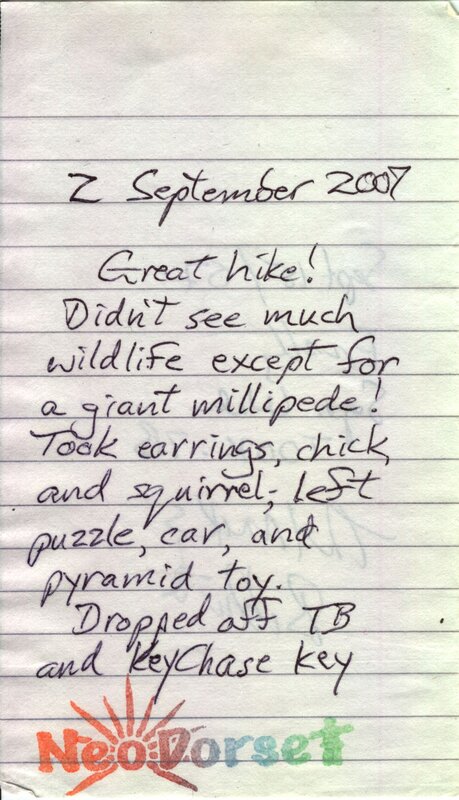 2 September 2007
Great hike!
Didn't see much
wildlife except for
a giant millipede!
Took earrings, chick,
and squirrel; left
puzzle, car, and
pyramid toy.
Dropped off TB
and KeyChase key
NeoDorset